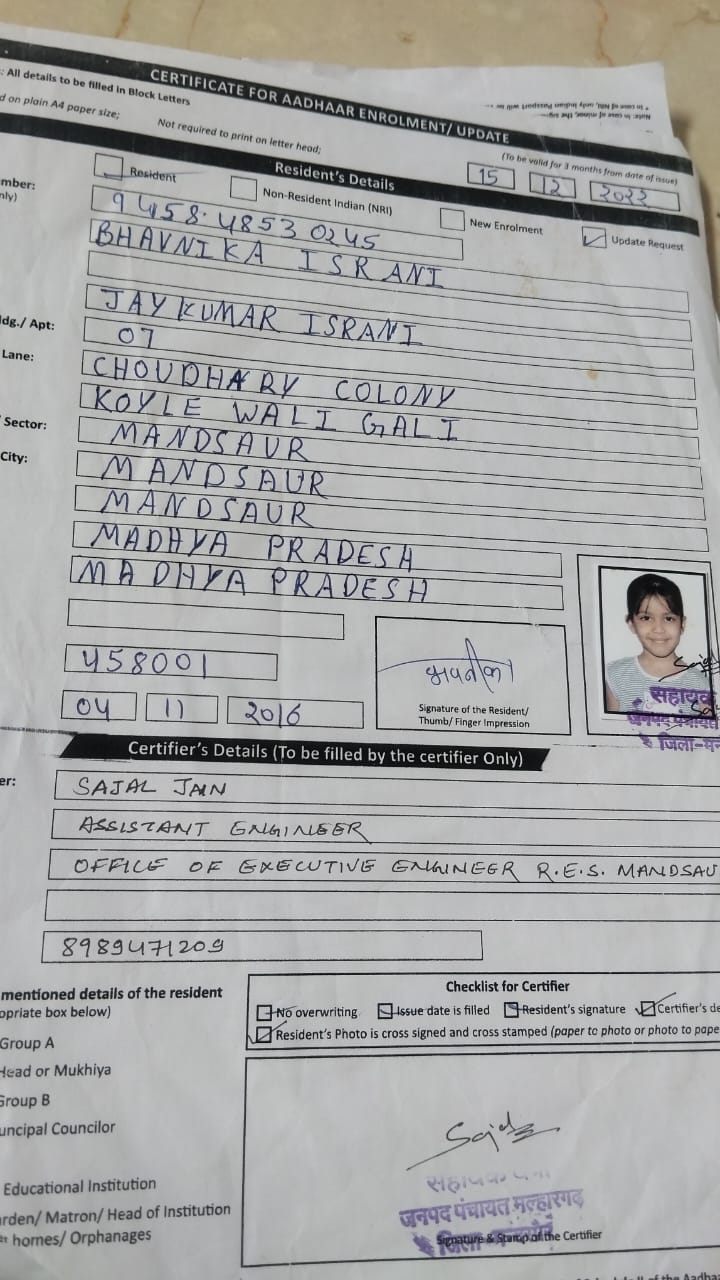 CERTIFICATE FOR AADHAAR ENROLMENT/ UPDATE
: All details to be filled in Block Letters
d on plain A4 paper size;
Not required to print on letter head;
(To be valid for 3 months from date of issue)
Resident's Details
15 12 2022
Resident
Non-Resident Indian (NRI)
New Enrolment
Update Request
mber:
nly)
9458 4853 0245
BHAVNIKA ISRANI
JAYKUMAR ISRANI
ldg./ Apt:
07
Lane:
CHOUDHARY COLONY
KOYLE WALI GALI
Sector:
MANDSAUR
City:
MANDSAUR
MANDSAUR
MADHYA PRADESH
MADHYA PRADESH
458001
04 11 2016
Signature of the Resident/
Thumb/ Finger Impression
सहायक
जनपद पंचायत
जिला-मन
Certifier's Details (To be filled by the certifier Only)
er:
SAJAL JAIN
ASSISTANT ENGINEER
OFFICE OF EXECUTIVE ENGINEER R.E.S. MANDSAU
8989471209
mentioned details of the resident
opriate box below)
Group A
Head or Mukhiya
Group B
uncipal Councilor
Educational Institution
arden/ Matron/ Head of Institution
homes/ Orphanages
Checklist for Certifier
No overwriting
Issue date is filled
Resident's signature
Certifier's de
Resident's Photo is cross signed and cross stamped (paper to photo or photo to pape
जनपद पंचायत मल्हारगढ़
Signature & Stamp of the Certifier